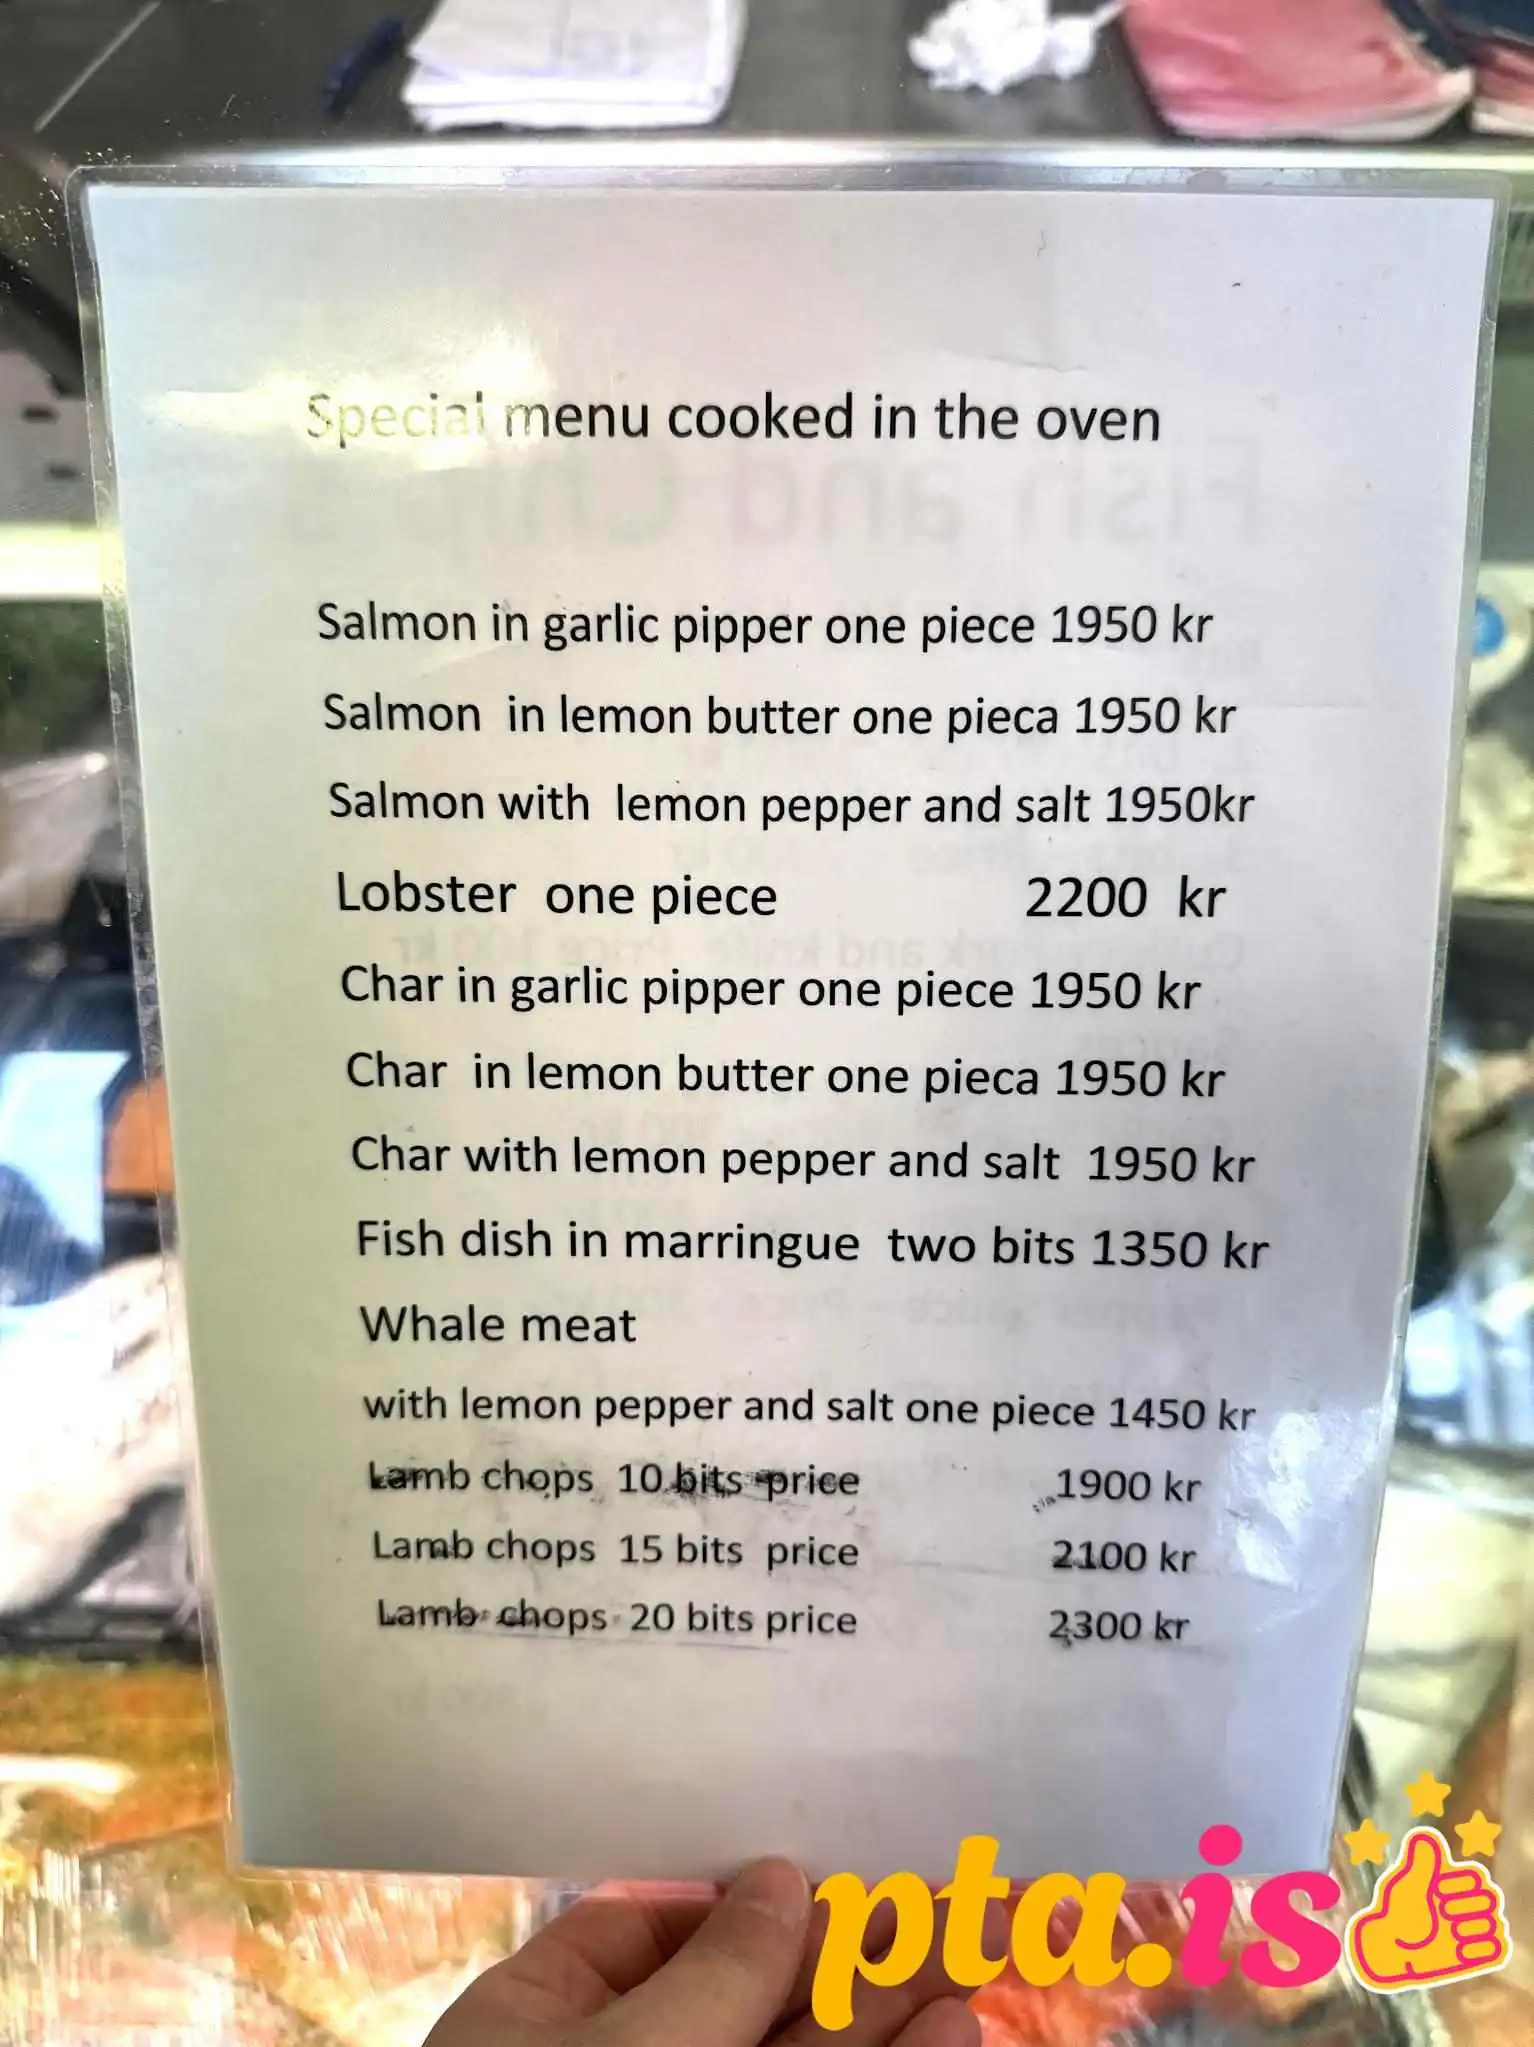 Special menu cooked in the oven
Salmon in garlic pipper one piece 1950 kr
Salmon in lemon butter one pieca 1950 kr
Salmon with lemon pepper and salt 1950kr
Lobster one piece 2200 kr
Char in garlic pipper one piece 1950 kr
Char in lemon butter one pieca 1950 kr
Char with lemon pepper and salt 1950 kr
Fish dish in marringue two bits 1350 kr
Whale meat
with lemon pepper and salt one piece 1450 kr
Lamb chops 10 bits price 1900 kr
Lamb chops 15 bits price 2100 kr
Lamb chops 20 bits price 2300 kr
pta.is